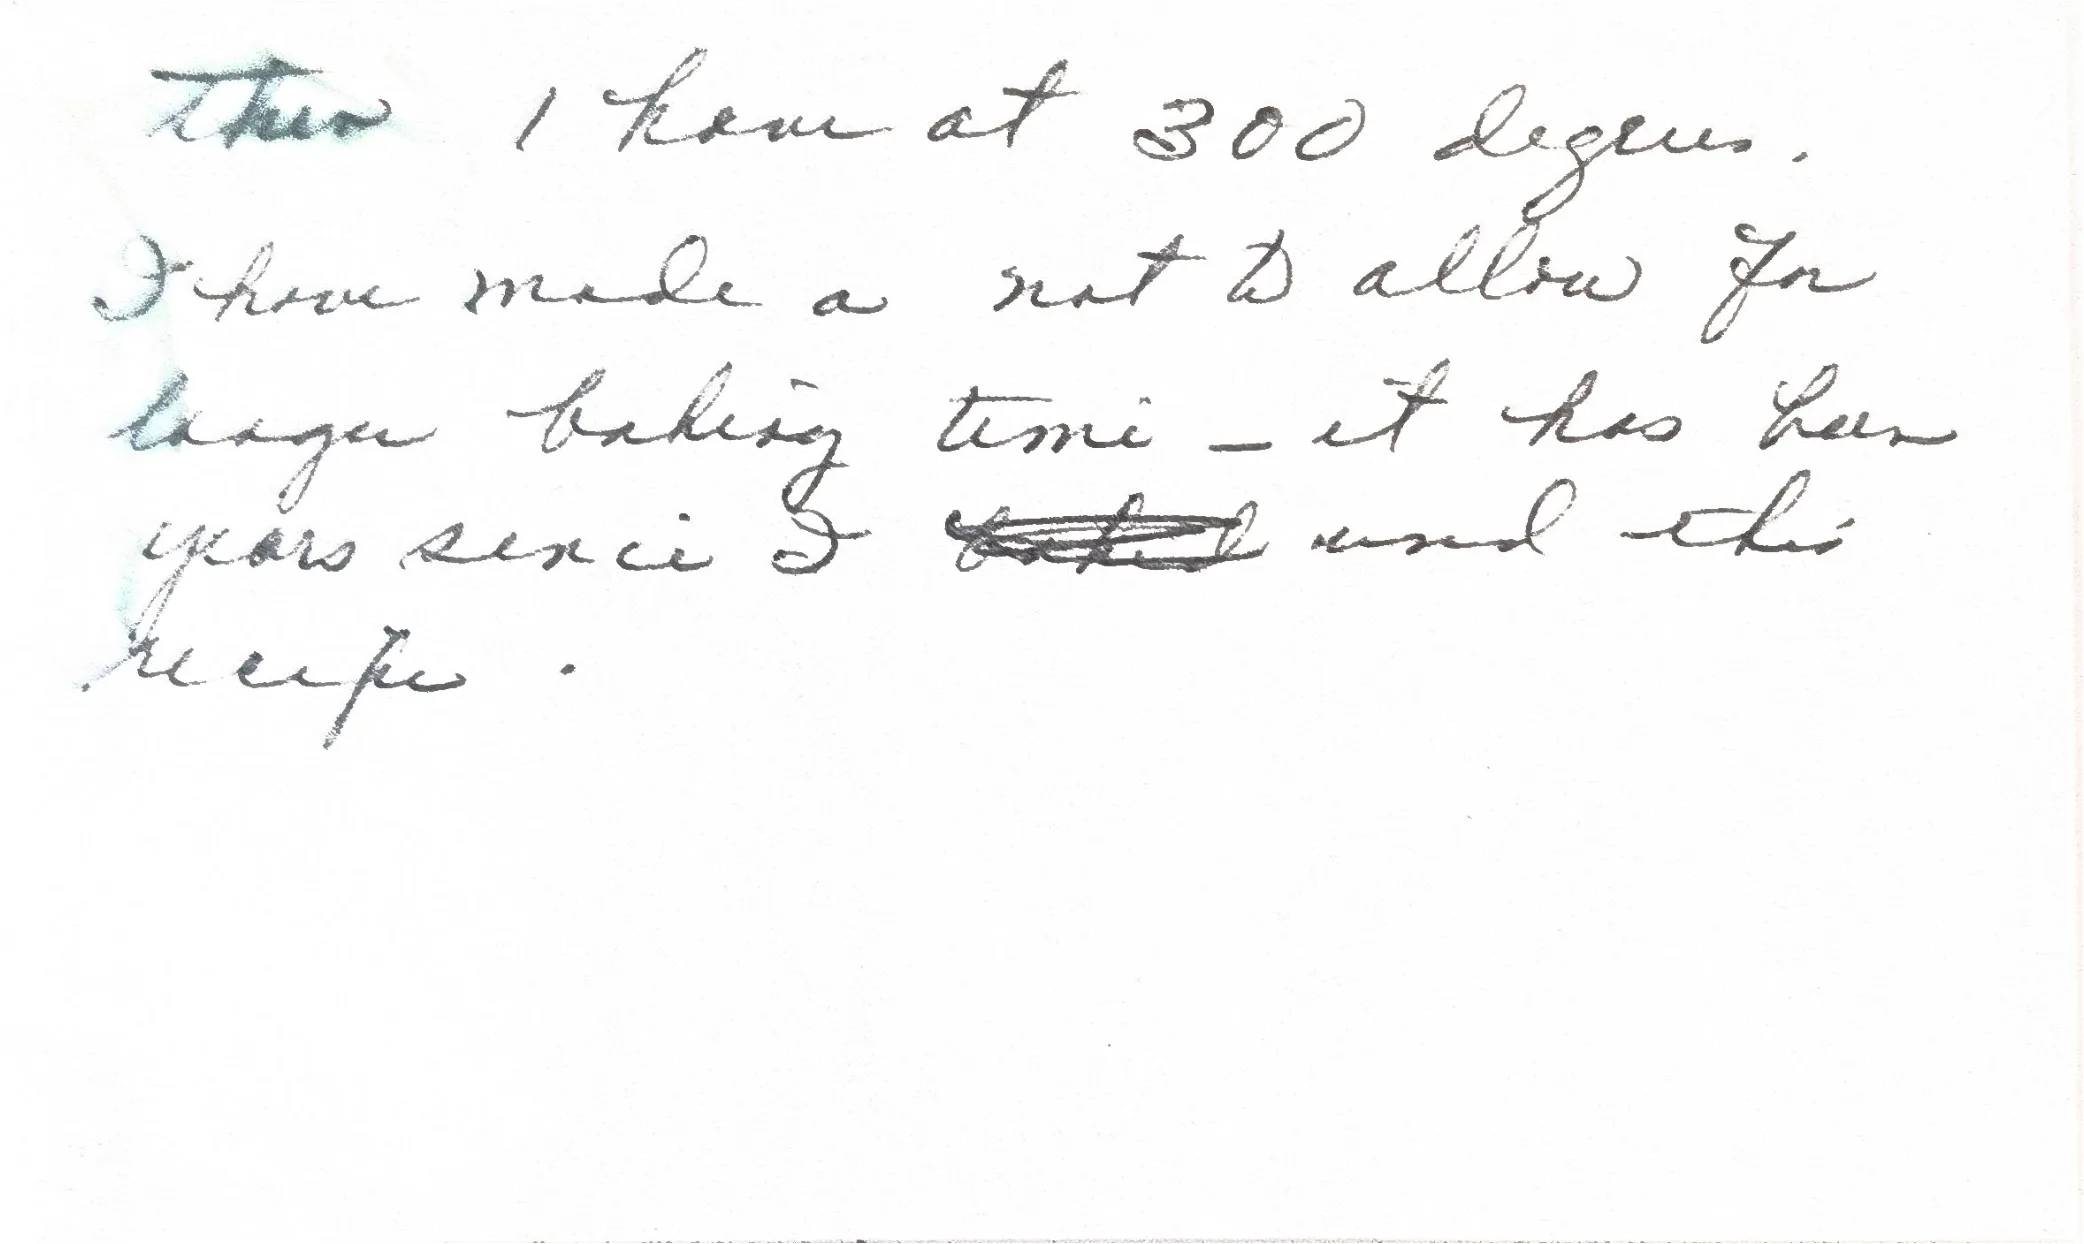 then 1 hour at 300 degrees.
I have made a not to allow for
longer baking time - it has been
years since I baked used this
recipe.